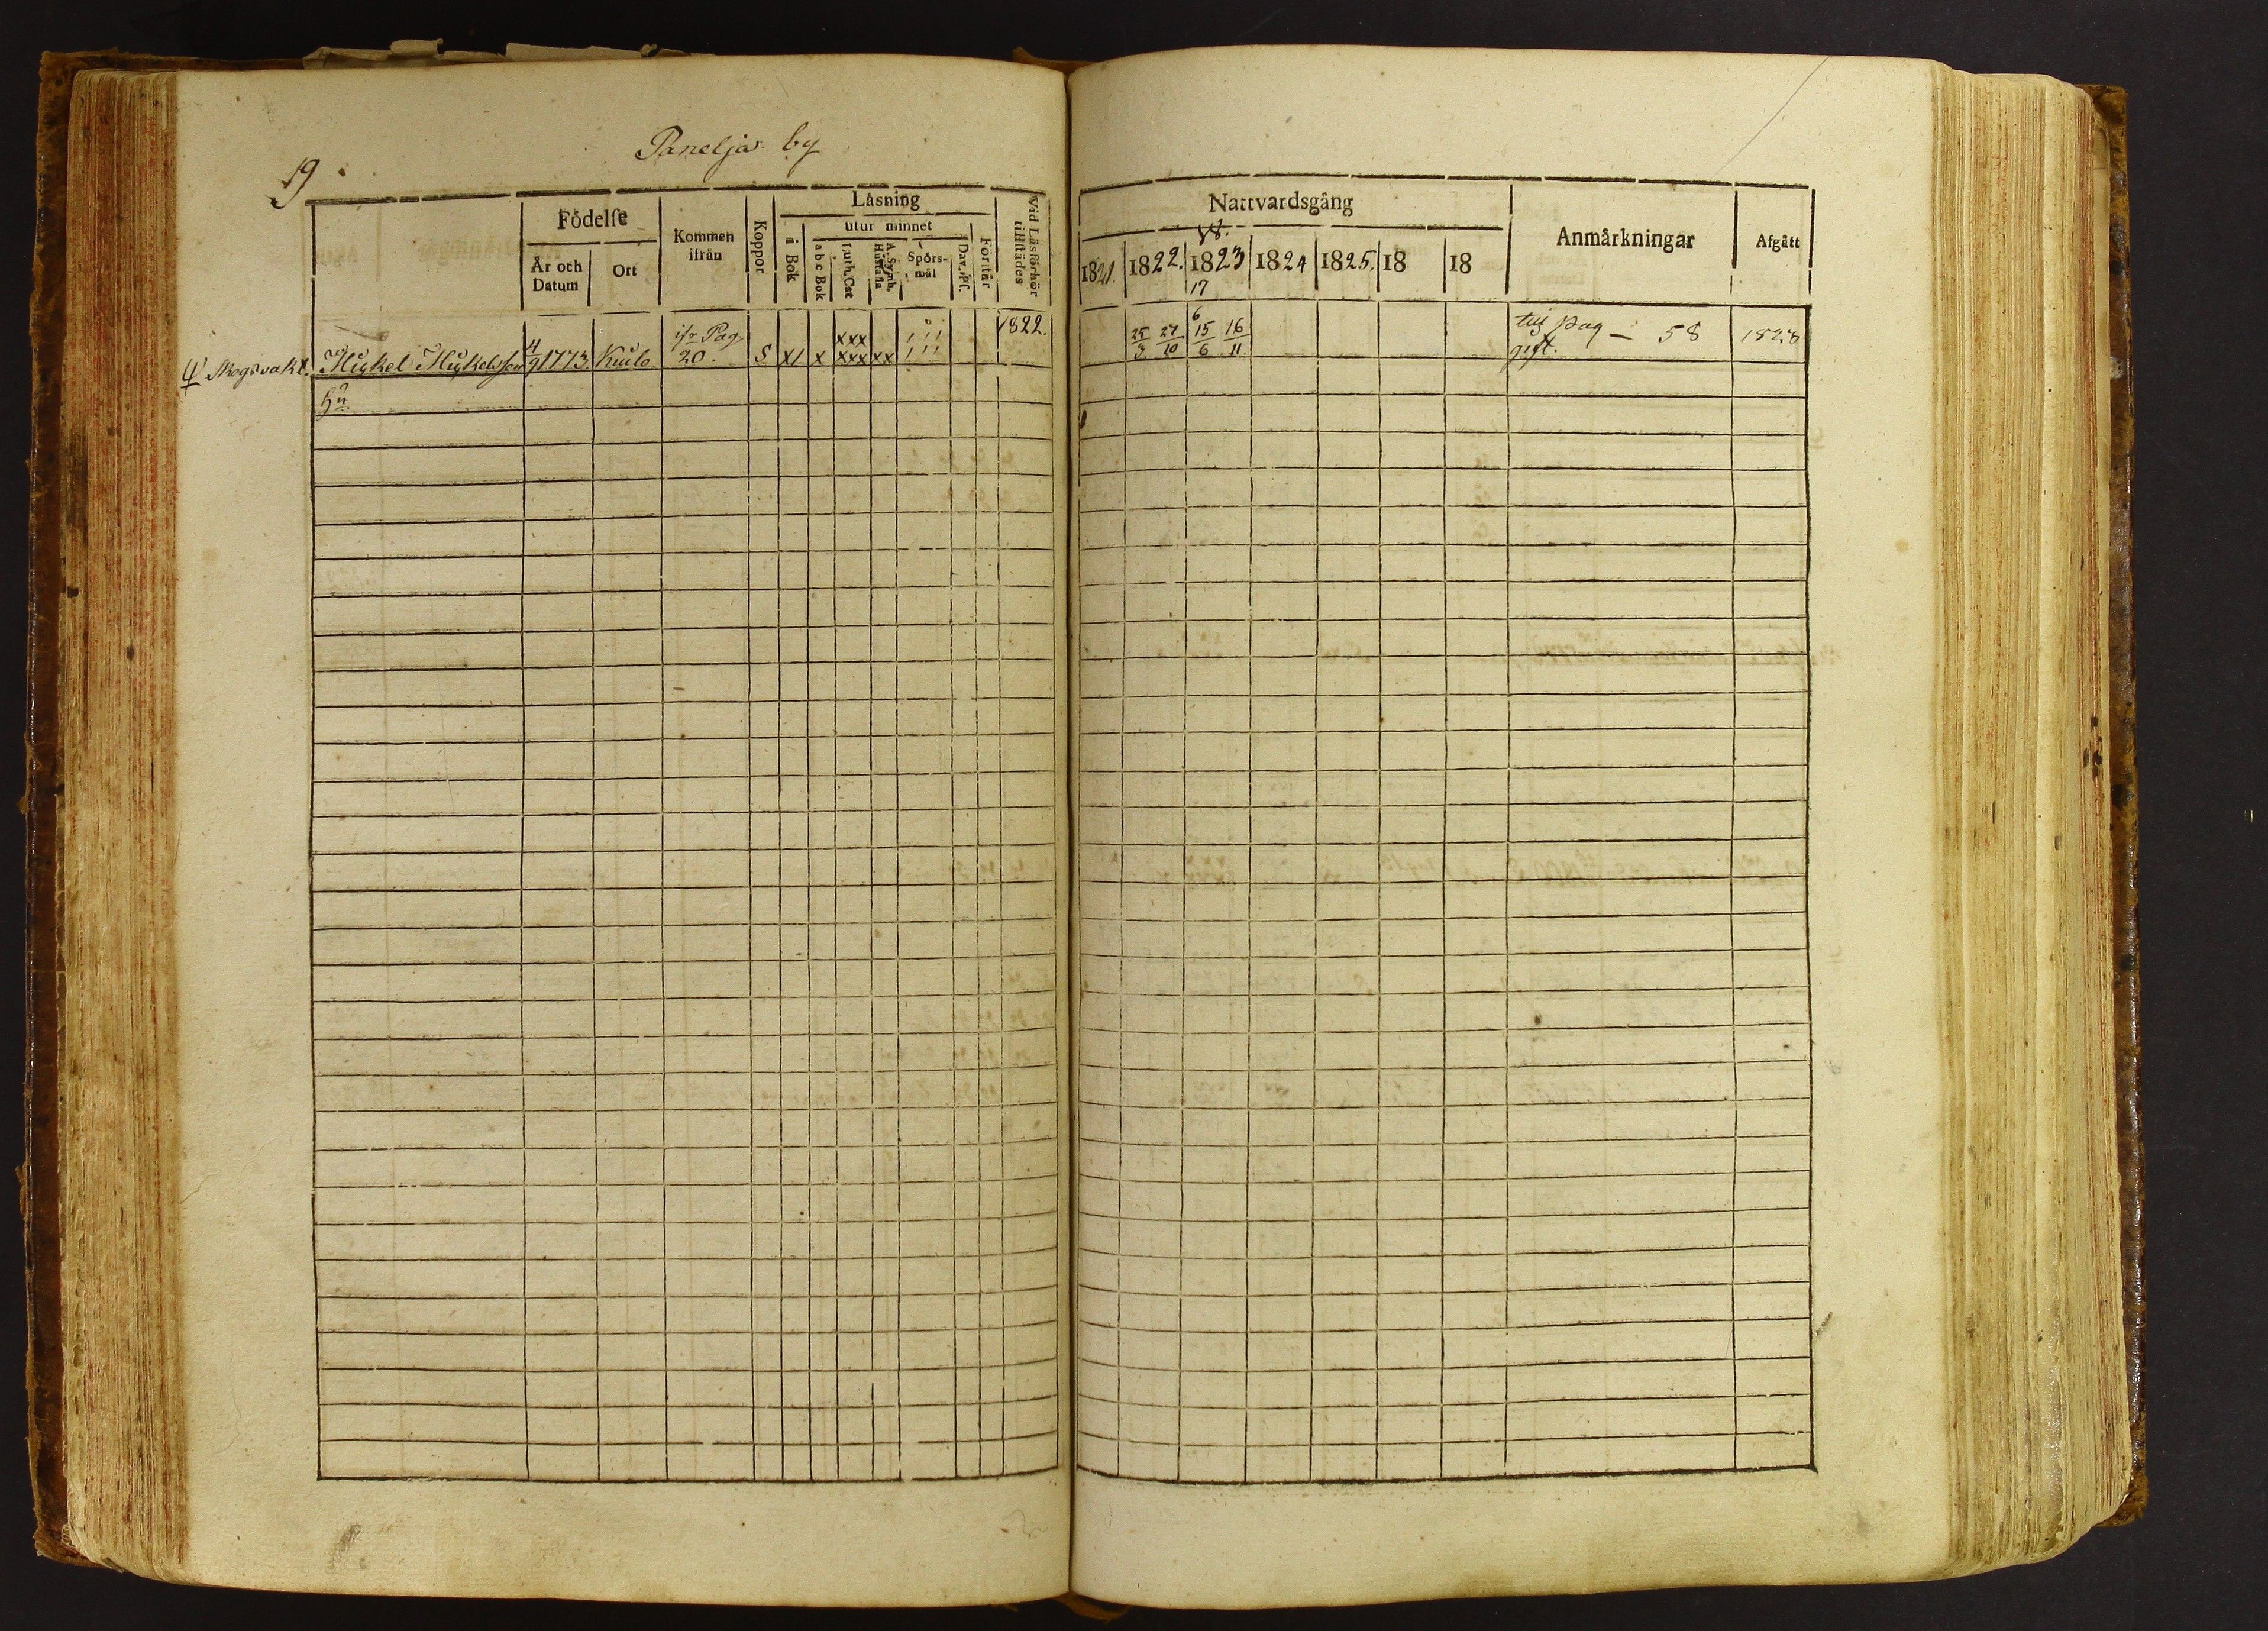 Panelja by
19
Födelſe
År och Datum
Ort
Kommen ifrån
Koppor
Läsning
i Bok
utur minnet
a b c Bok
Luth. Cat
A. Symb. Hustafla
Spörsmål
Dav. Pſ.
Förſtår
Vid Läsförhör tillſtädes
Nattvardsgång
18.
1821. 1822. 1823 1824 1825. 18 18
17
Anmärkningar
Afgått
Skogsvakt. Mickel Mickelsson 4/9 1773. Kiulo ifr Pag 20. S X1 x xxx xxx xx 1822.
25/3 27/10 6 15/6 16/11
till pag — 58
gift.
1828
Hu